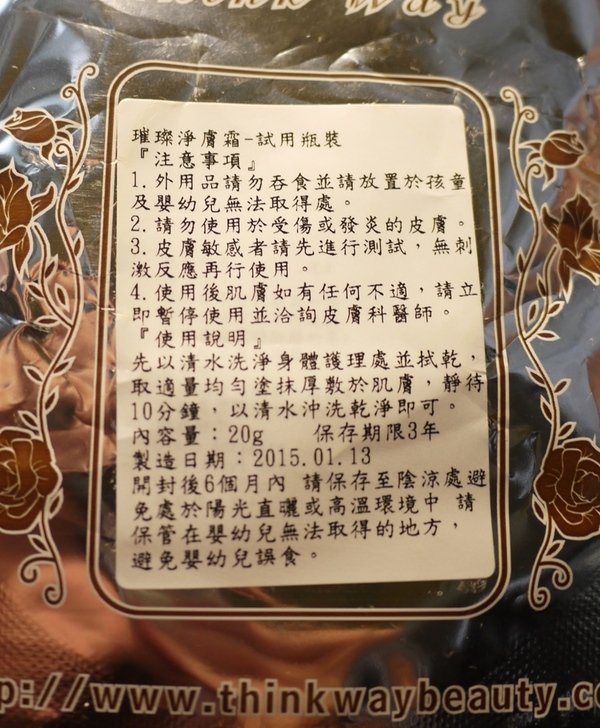 Think Way
璀璨淨膚霜-試用瓶裝
『注意事項』
1. 外用品請勿吞食並請放置於孩童
及嬰幼兒無法取得處。
2. 請勿使用於受傷或發炎的皮膚。
3. 皮膚敏感者請先進行測試，無刺
激反應再行使用。
4. 使用後肌膚如有任何不適，請立
即暫停使用並洽詢皮膚科醫師。
『使用說明』
先以清水洗淨身體護理處並拭乾，
取適量均勻塗抹厚敷於肌膚，靜待
10分鐘，以清水沖洗乾淨即可。
內容量：20g 保存期限3年
製造日期：2015.01.13
開封後6個月內 請保存至陰涼處避
免處於陽光直曬或高溫環境中 請
保管在嬰幼兒無法取得的地方，
避免嬰幼兒誤食。
p://www.thinkwaybeauty.co